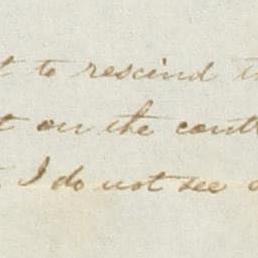 to rescind
on the cont
I do not see